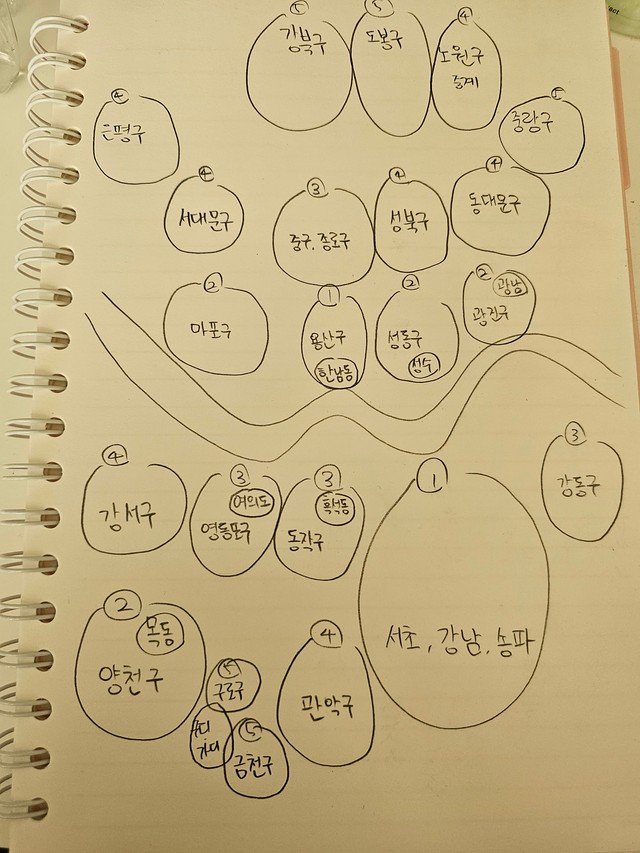 ⑤ ⑤ ④
강북구 도봉구 노원구
중계
④ ⑤
은평구 중랑구
④ ③ ④ ④
서대문구 중구, 종로구 성북구 동대문구
② ① ② ②
광남
마포구 용산구 성동구 광진구
한남동 성수
④ ③ ③ ① ③
여의도 흑석동
강서구 영등포구 동작구 강동구
② ④
목동
양천구 관악구 서초, 강남, 송파
구로구
⑤
구디
가디
금천구